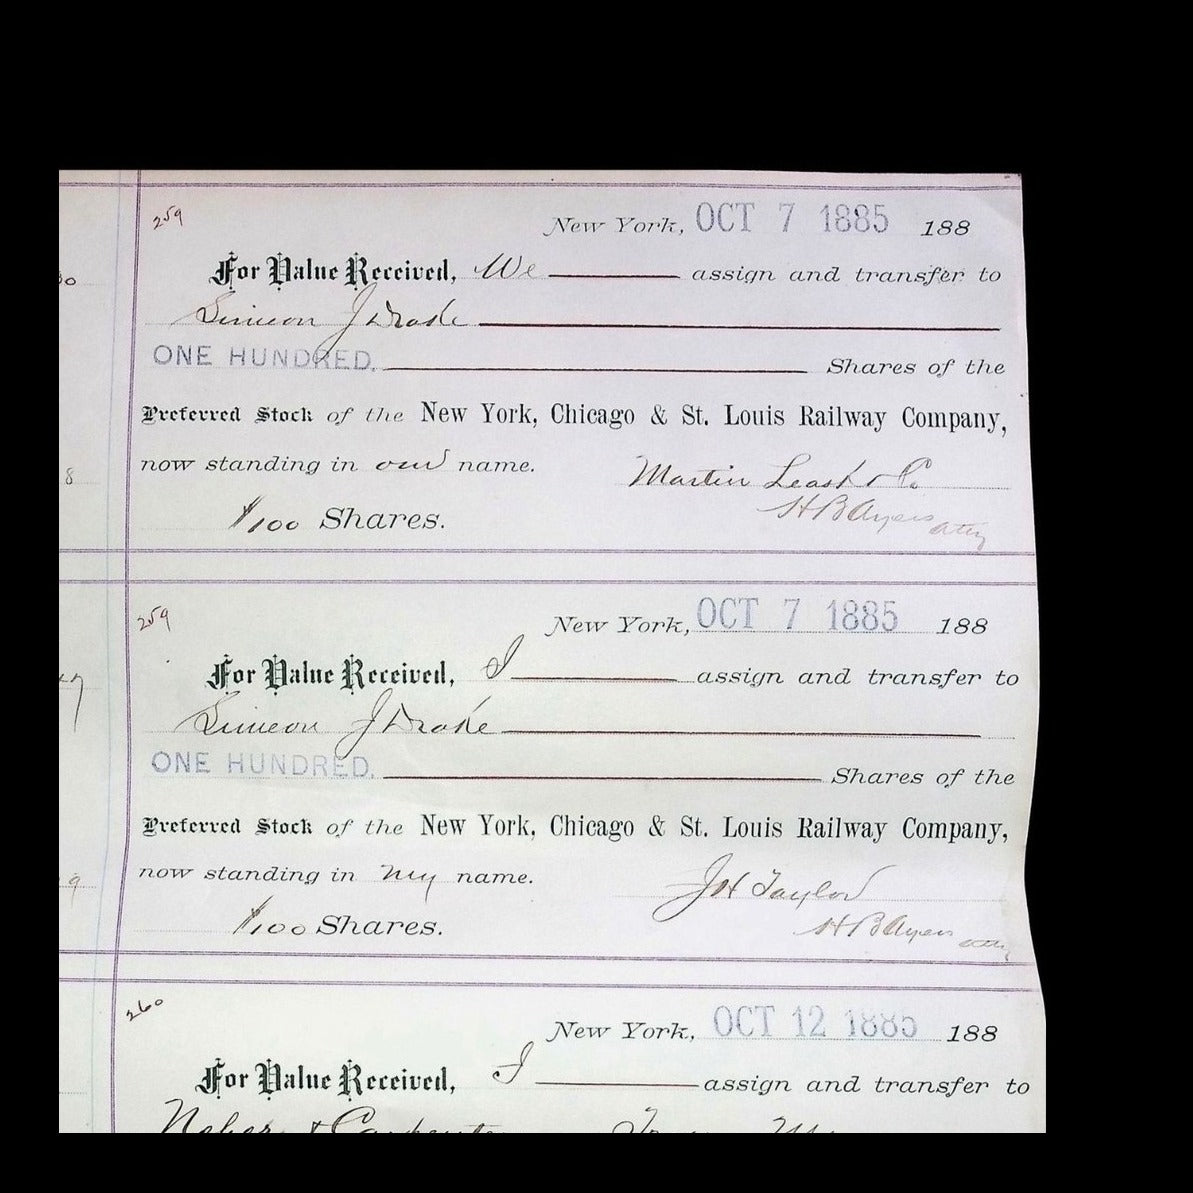 259
New York, OCT 7 1885 188
For Value Received, We assign and transfer to
Simeon J Drake
ONE HUNDRED. Shares of the
Preferred Stock of the New York, Chicago & St. Louis Railway Company,
8
now standing in our name. Martin Leask & Co
$100 Shares. H B Ayers atty
259
New York, OCT 7 1885 188
For Value Received, I assign and transfer to
Simeon J Drake
ONE HUNDRED. Shares of the
Preferred Stock of the New York, Chicago & St. Louis Railway Company,
9
now standing in my name. J H Taylor
$100 Shares. H B Ayers atty
260
New York, OCT 12 1885 188
For Value Received, I assign and transfer to